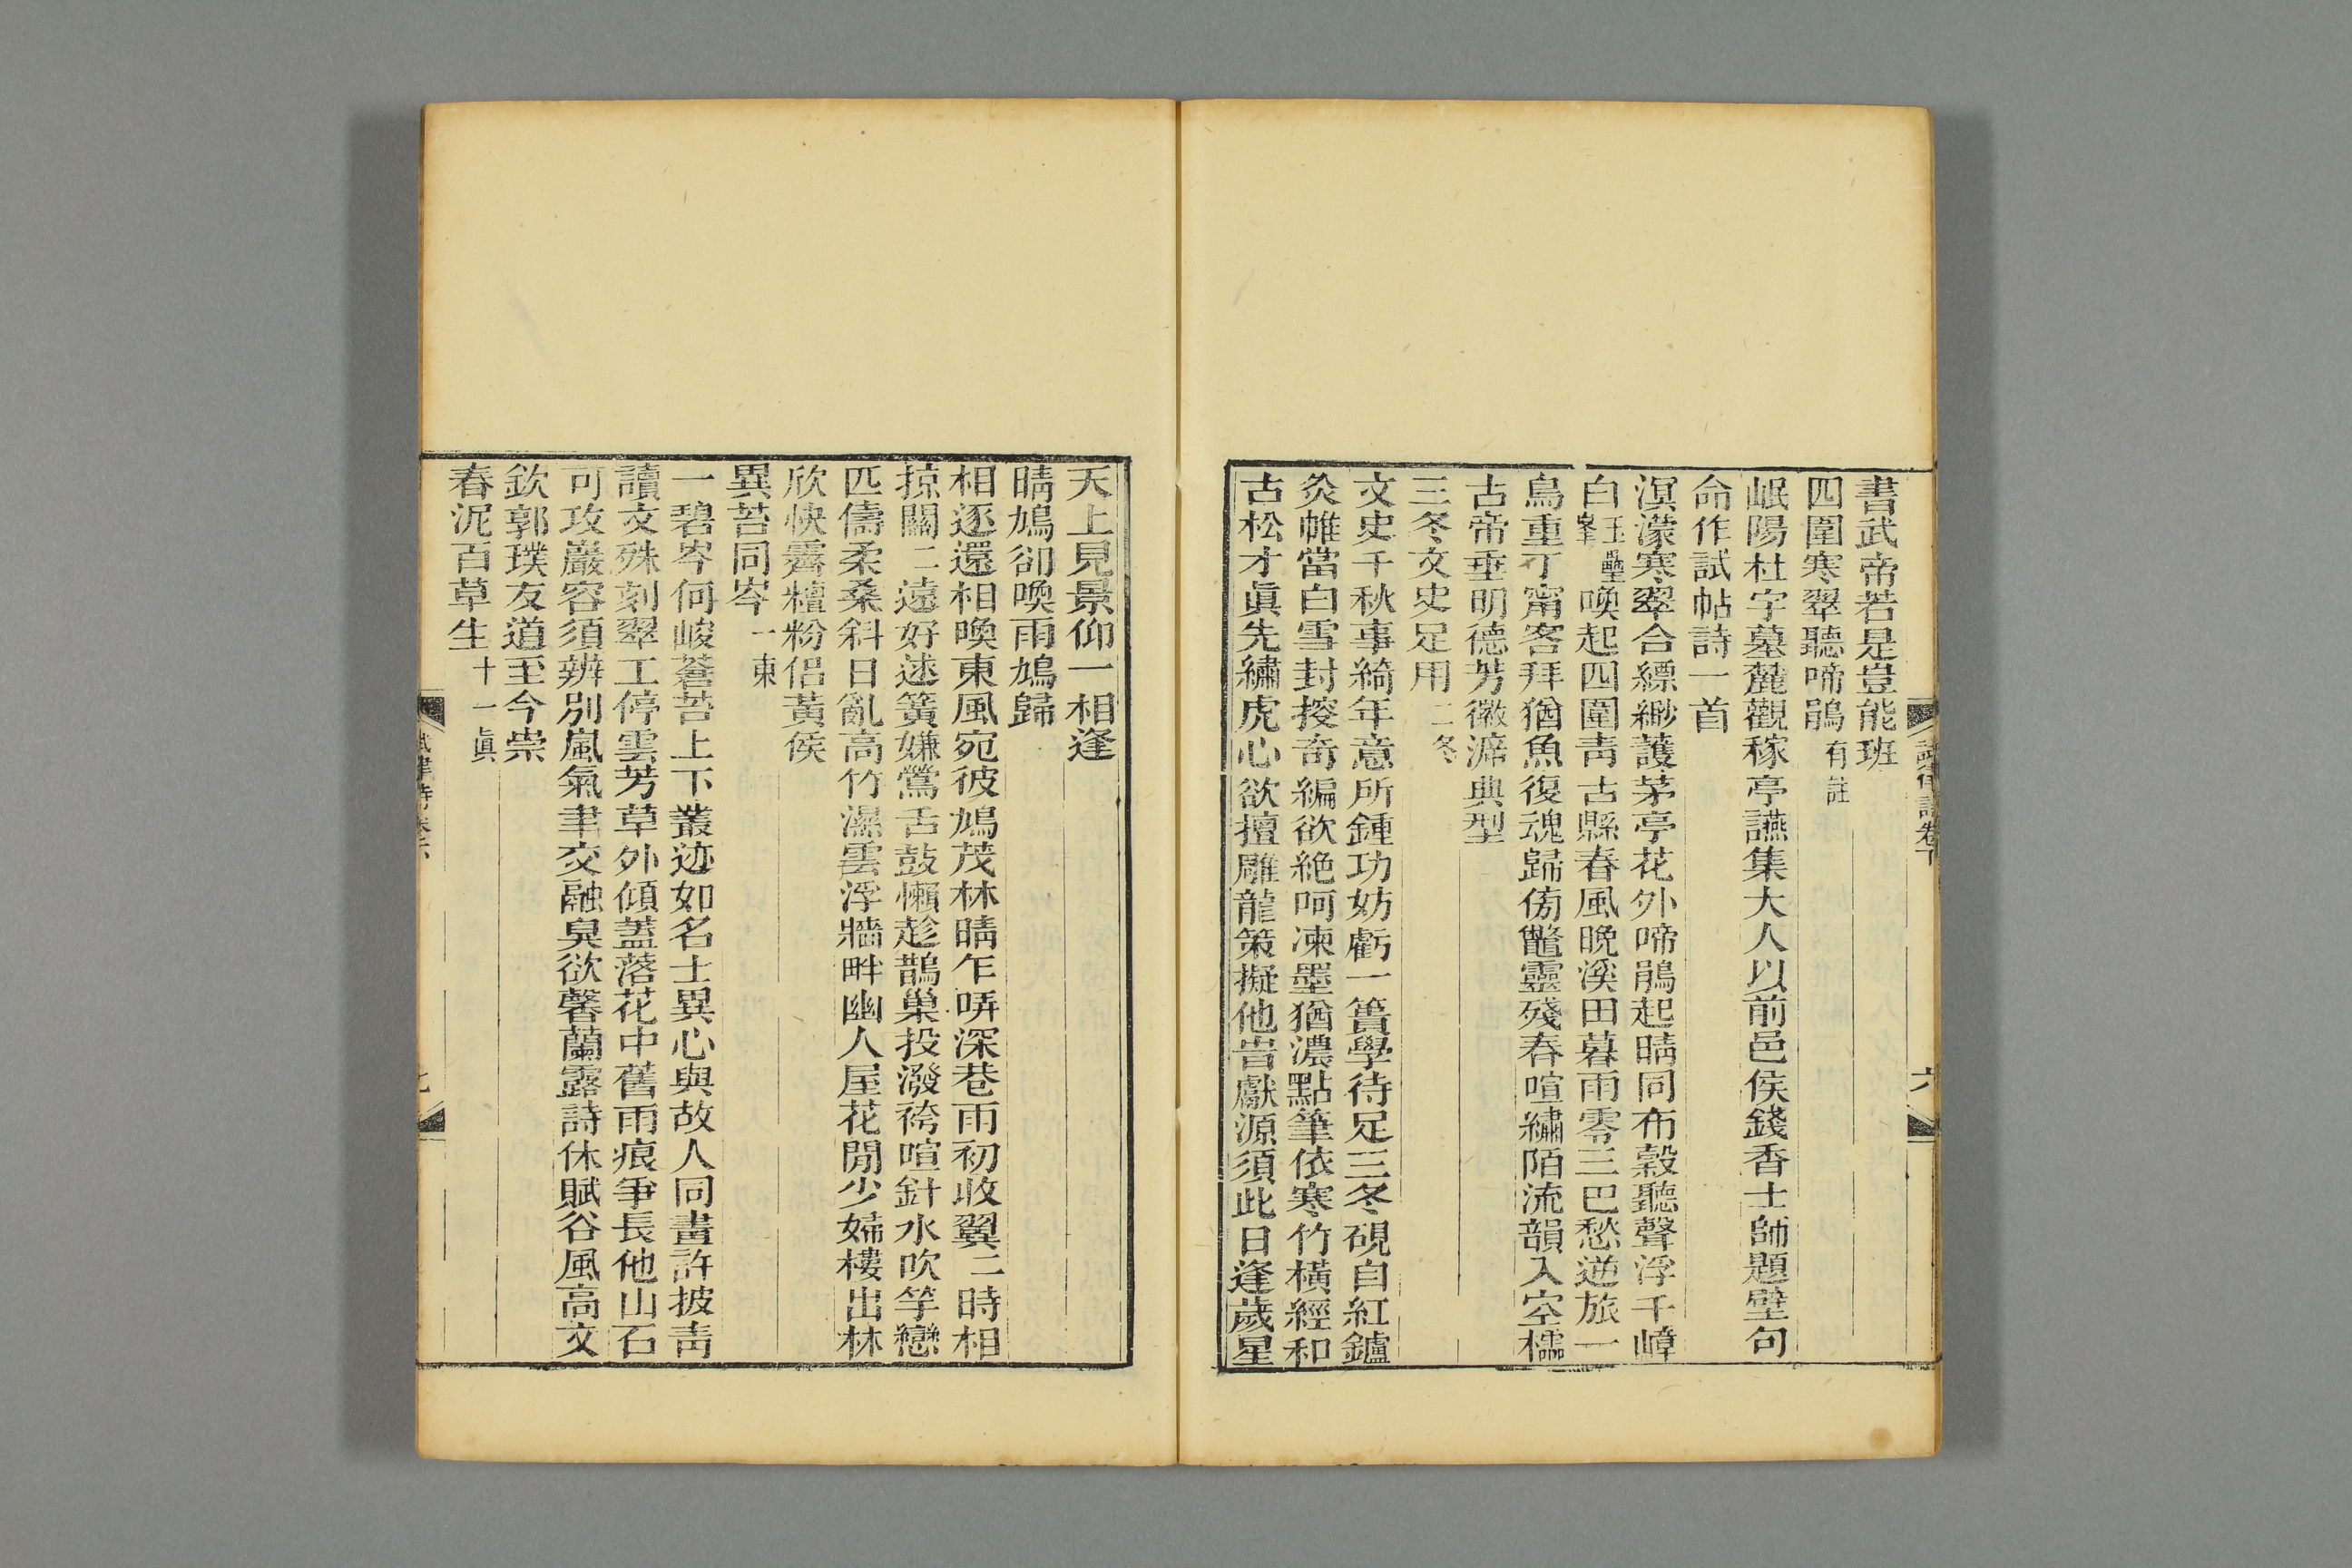 書武帝若是豈能班
四圍寒翠聽啼鵑有註
岷陽杜宇墓麓觀稼亭讌集大人以前邑侯錢香士師題壁句
命作試帖詩一首
溟濛寒翠合縹緲護茅亭花外啼鵑起晴同布穀聽聲浮千嶂
白玉壘峯喚起四圍青古縣春風晚溪田暮雨零三巴愁逆旅一
鳥重丁甯客拜猶魚復魂歸傍鼈靈殘春喧繡陌流韻入空櫺
古帝垂明德芳徽溯典型
三冬文史足用二冬
文史千秋事綺年意所鍾功妨虧一簣學待足三冬硯自紅鑪
炙帷當白雪封搜奇編欲絶呵凍墨猶濃點筆依寒竹橫經和
古松才眞先繡虎心欲擅雕龍策擬他時獻源須此日逢歲星
天上見景仰一相逢
晴鳩卻喚雨鳩歸
相逐還相喚東風宛彼鳩茂林晴乍哢深巷雨初收翼二時相
掠關二遠好逑簧嫌鶯舌鼓懶趁鵲巢投潑袴喧針水吹竽戀
匹儔柔桑斜日亂高竹濕雲浮牆畔幽人屋花閒少婦樓出林
欣快霽檀粉侶黃侯
異苔同岑一東
一碧岑何峻蒼苔上下叢迹如名士異心與故人同畫許披青
讀文殊刻翠工停雲芳草外傾蓋落花中舊雨痕爭長他山石
可攻巖容須辨別嵐氣聿交融臭欲馨蘭露詩休賦谷風高文
欽郭璞友道至今崇
春泥百草生十一眞